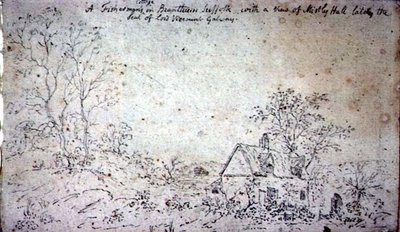 A in Brantham Suffolk with a View of Hall lately the
Seat of Lord Viscount Galway.